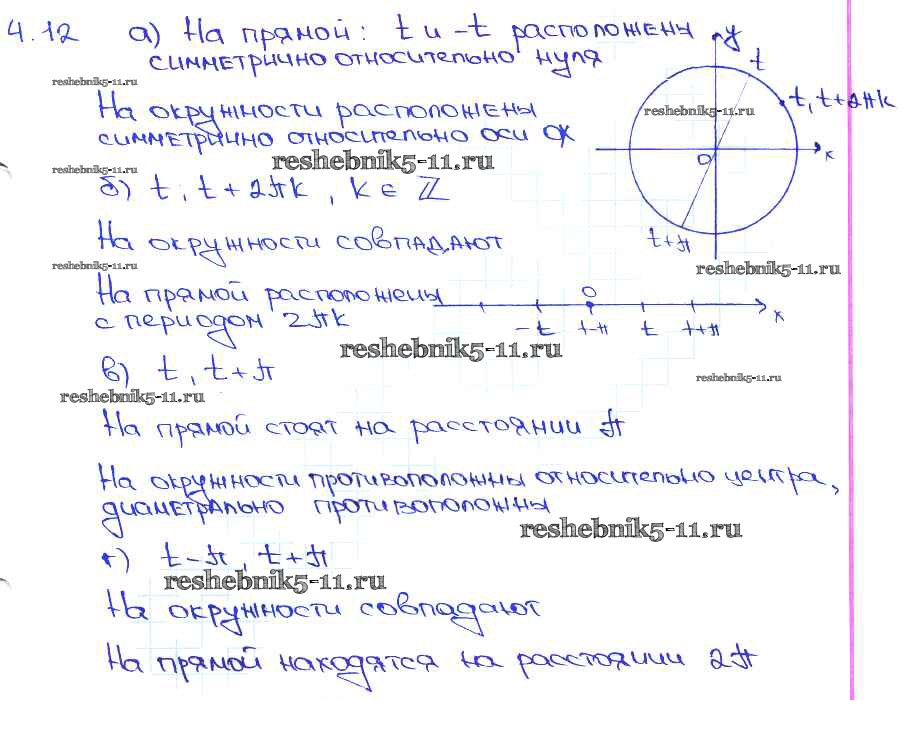 4.12 а) На прямой: t и -t расположены
симметрично относительно нуля
reshebnik5-11.ru
На окружности расположены
симметрично относительно оси OX
reshebnik5-11.ru
reshebnik5-11.ru
б) t, t + 2πk, k ∈ ℤ
На окружности совпадают
reshebnik5-11.ru
На прямой расположены
с периодом 2πk
reshebnik5-11.ru
в) t, t + π
reshebnik5-11.ru
На прямой стоят на расстоянии π
На окружности противоположны относительно центра,
диаметрально противоположны
reshebnik5-11.ru
г) t - π, t + π
reshebnik5-11.ru
На окружности совпадают
На прямой находятся на расстоянии 2π
y
t
t, t+2πk
reshebnik5-11.ru
x
O
t+π
reshebnik5-11.ru
O
x
-t t-π t t+π
reshebnik5-11.ru